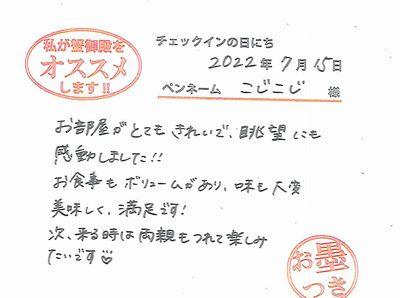 私が蟹御殿を
オススメ
します!!
チェックインの日にち
2022年7月15日
ペンネーム こじこじ 様
お部屋がとてもきれいで、眺望にも
感動しました!!
お食事もボリュームがあり、味も大変
美味しく、満足です!
次、来る時は両親もつれて楽しみ
たいです♡
お墨
つき